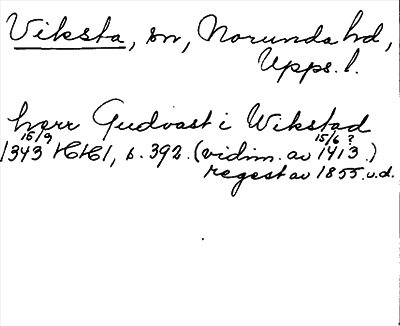 Viksta, sn, Norunda hd,
Upps. l.
herr Gudvast i Wikstad
15/9 15/6 ?
1343 HH1, s. 392. (vidim. av 1413.)
regest av 1855 u.d.